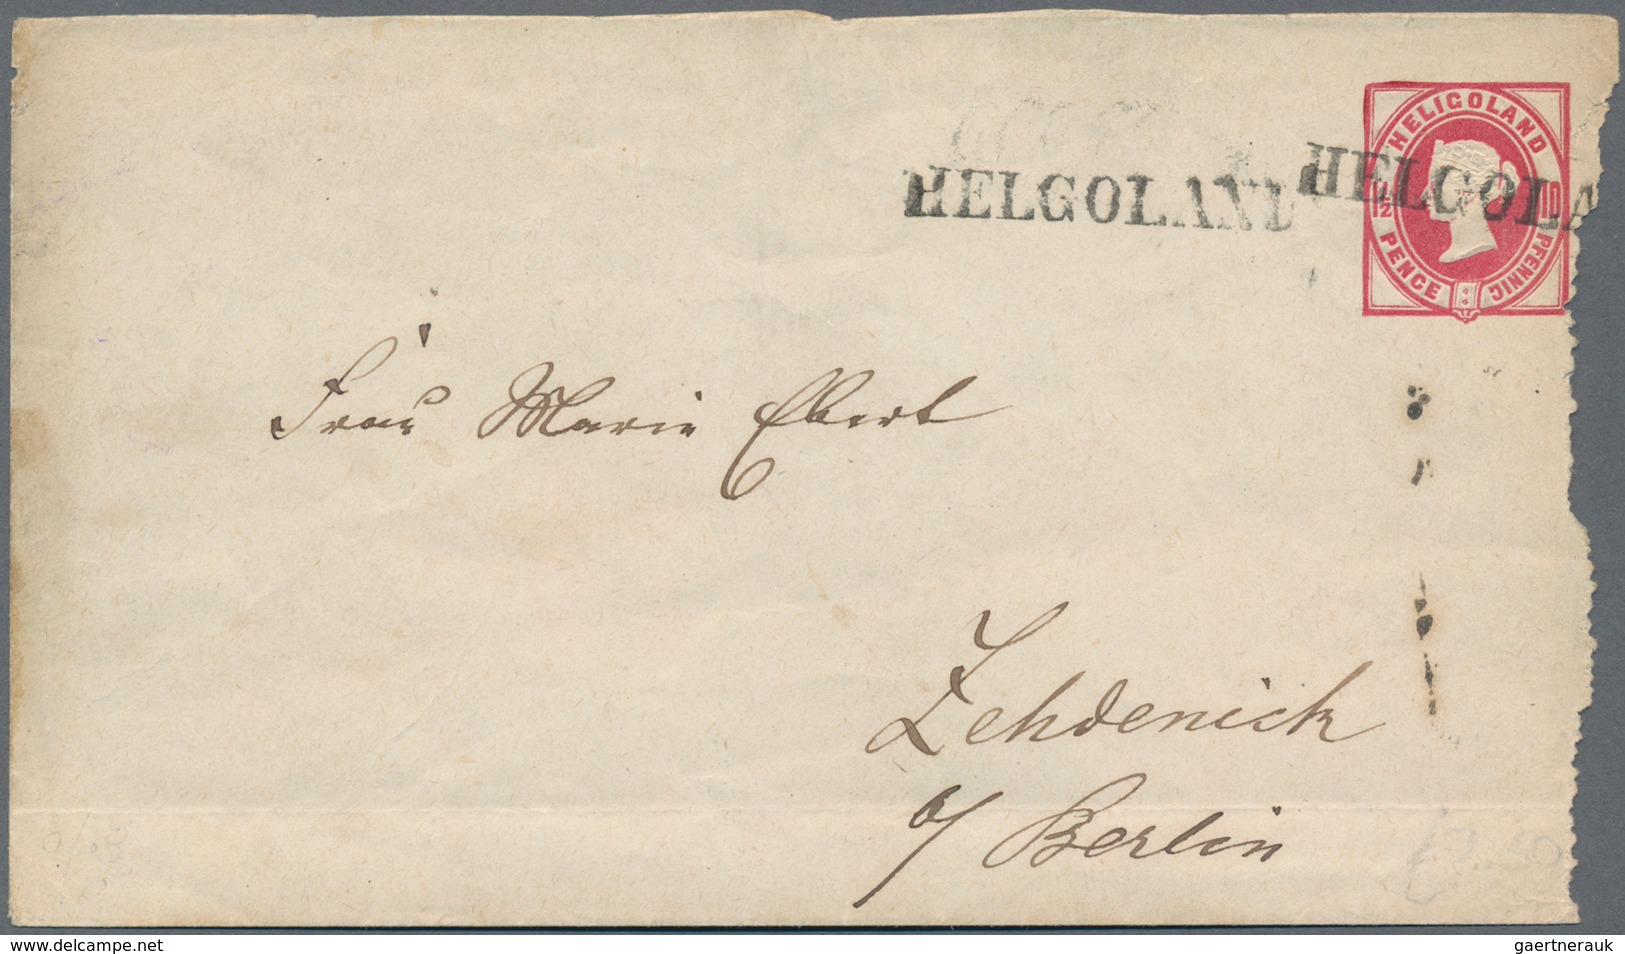 HELIGOLAND
1½ PENCE
10 PFENNIG
HELGOLAND
HELGOLA
Frau Marie Ebert
Zehdenick
b/ Berlin
www.delcampe.net
gaertnerauk